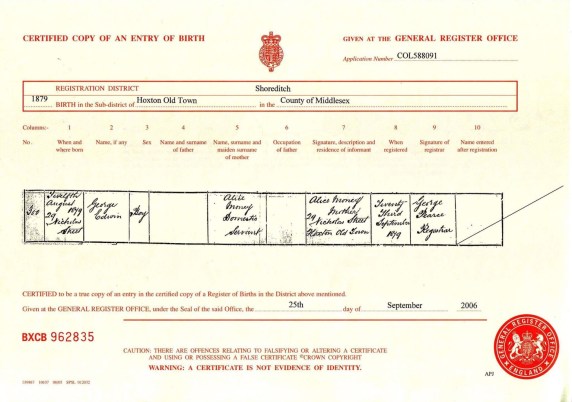 CERTIFIED COPY OF AN ENTRY OF BIRTH
GIVEN AT THE GENERAL REGISTER OFFICE
Application Number COL588091
REGISTRATION DISTRICT Shoreditch
1879 BIRTH in the Sub-district of Hoxton Old Town in the County of Middlesex
Columns:- 1 2 3 4 5 6 7 8 9 10
No. When and where born Name, if any Sex Name and surname of father Name, surname and maiden surname of mother Occupation of father Signature, description and residence of informant When registered Signature of registrar Name entered after registration
Twelfth August 1879 29 Nicholas Street
George Edwin
Boy
Alice Money Domestic Servant
Alice Money Mother 29 Nicholas Street Hoxton Old Town
Twenty Third September 1879
George Pearce Registrar
CERTIFIED to be a true copy of an entry in the certified copy of a Register of Births in the District above mentioned.
Given at the GENERAL REGISTER OFFICE, under the Seal of the said Office, the 25th day of September 2006
BXCB 962835
CAUTION: THERE ARE OFFENCES RELATING TO FALSIFYING OR ALTERING A CERTIFICATE
AND USING OR POSSESSING A FALSE CERTIFICATE ©CROWN COPYRIGHT
WARNING: A CERTIFICATE IS NOT EVIDENCE OF IDENTITY.
GENERAL REGISTER OFFICE
ENGLAND